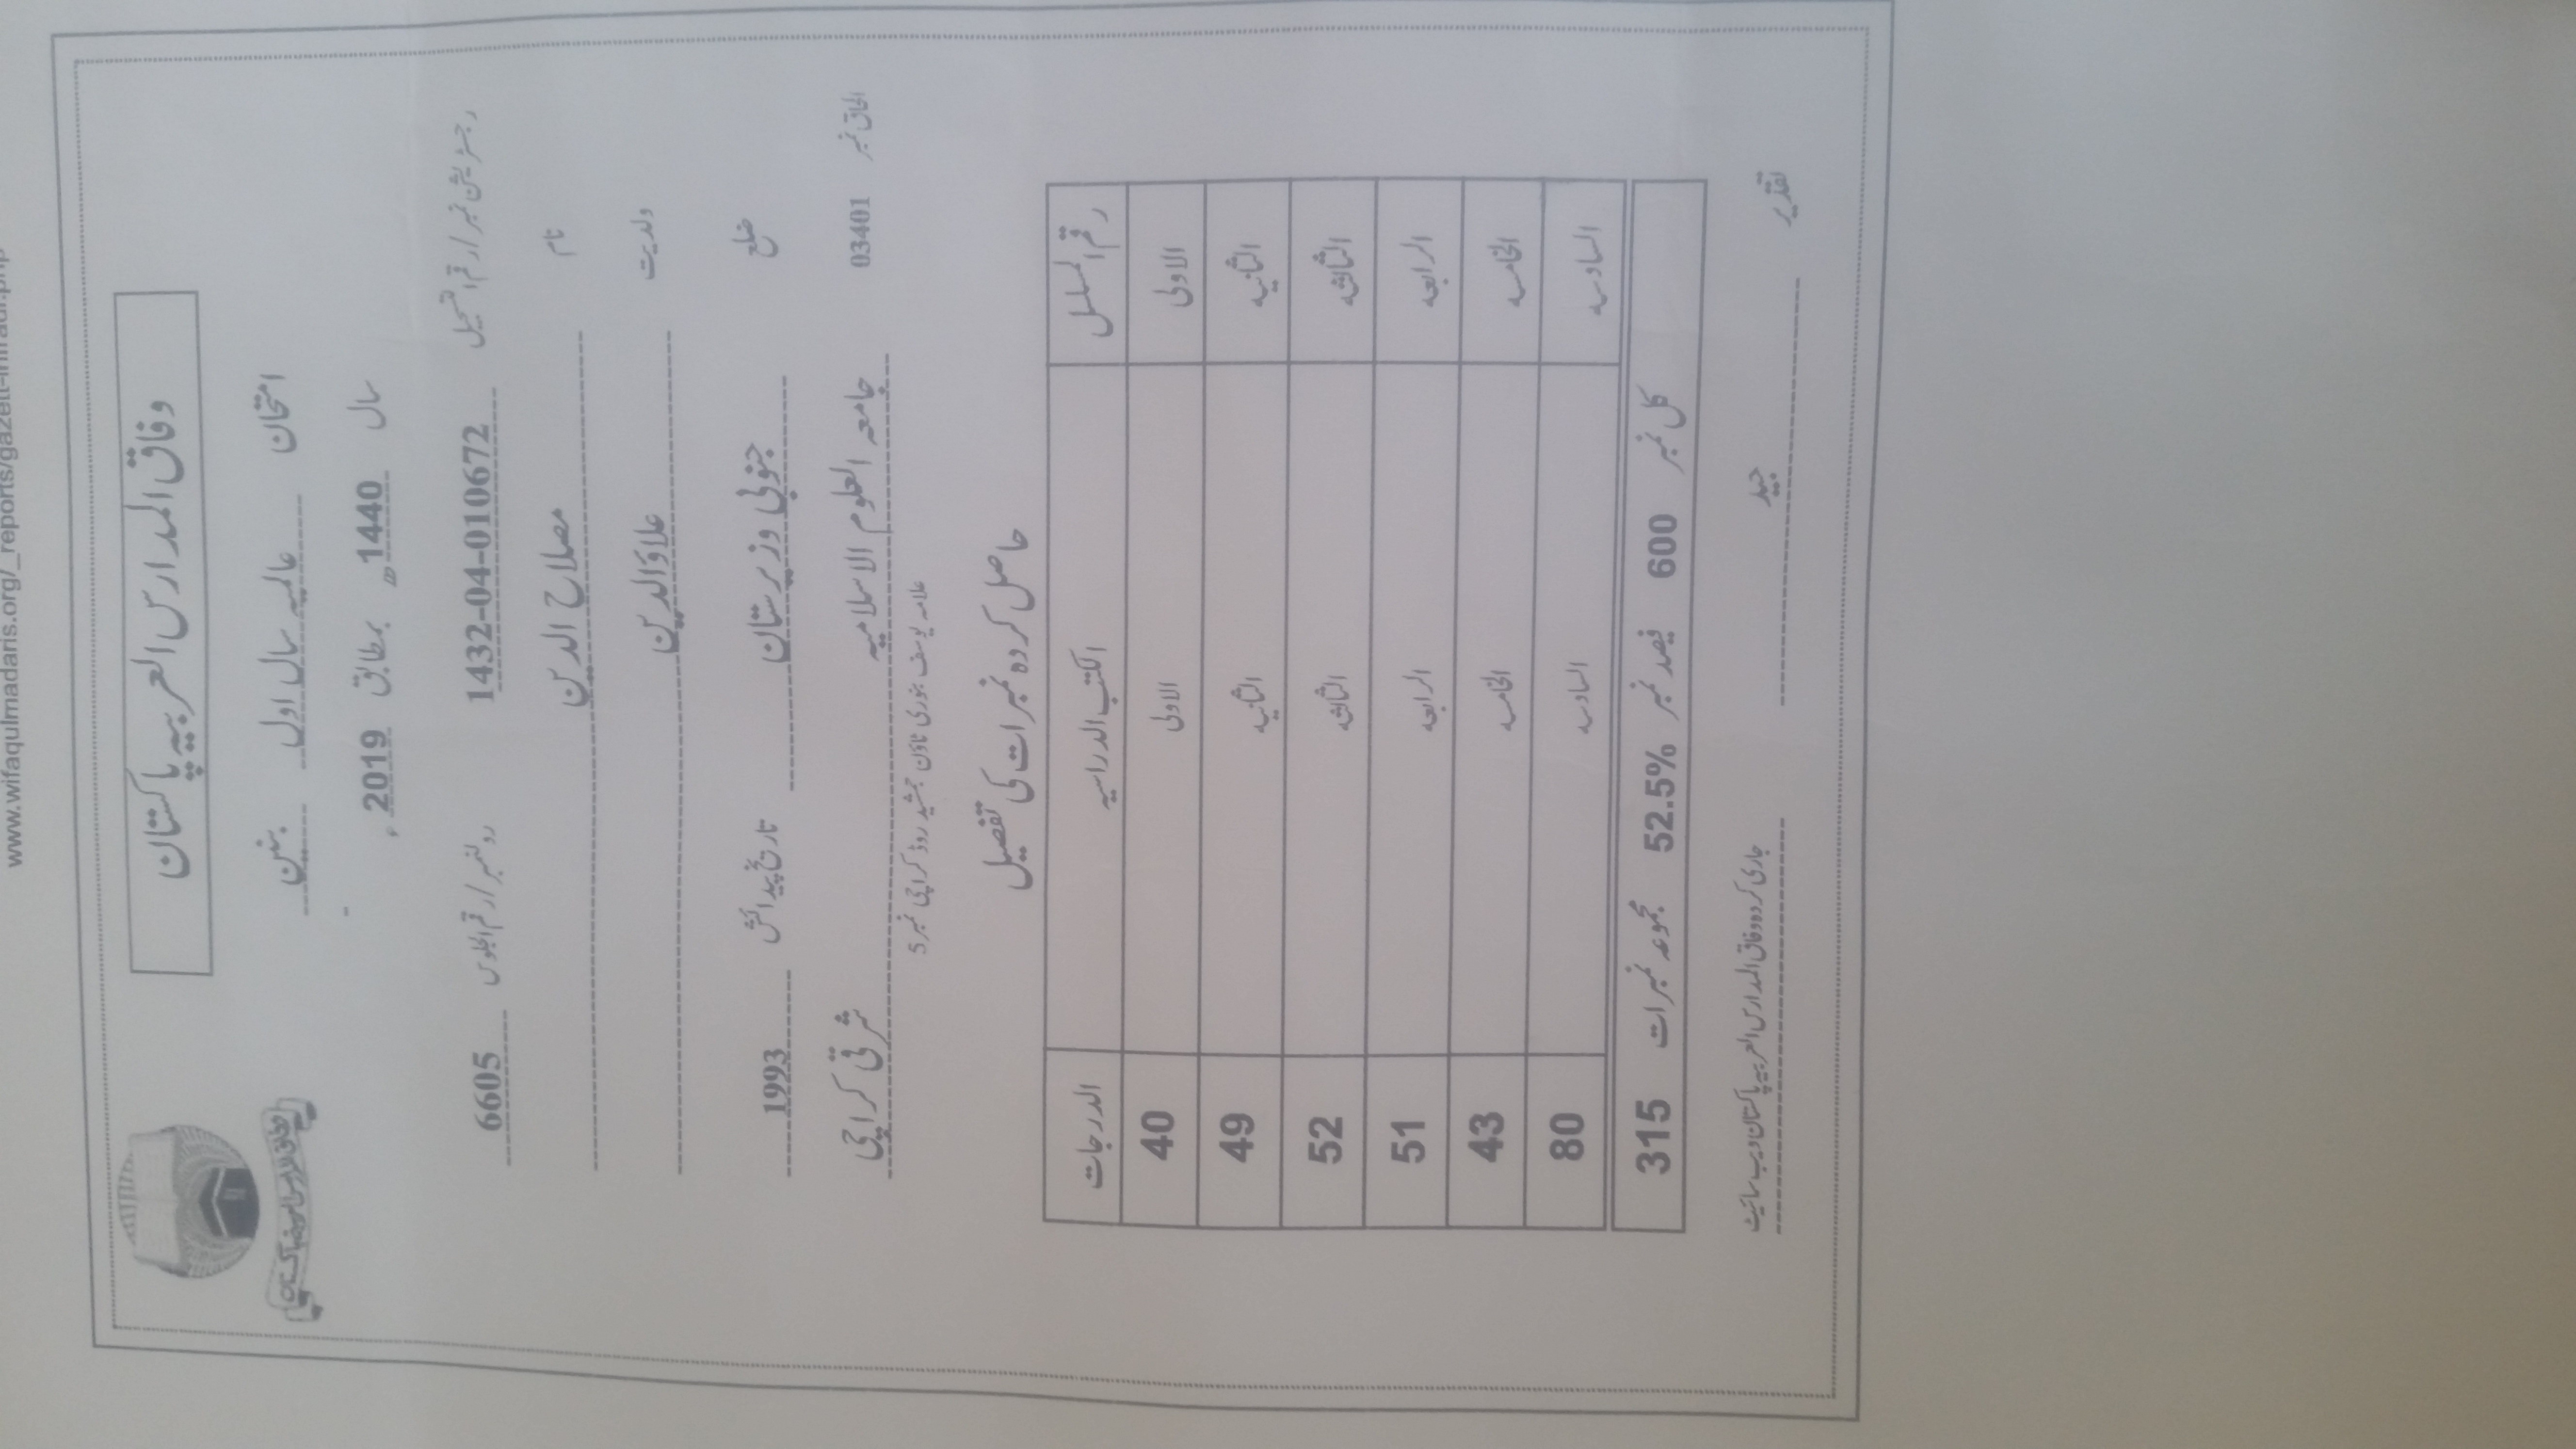 www.wifaqulmadaris.org/_reports/gazett-
وفاق المدارس العربیہ پاکستان
وفاق المدارس العربیہ پاکستان
امتحان عالمیہ سال اول بنین
سال 1440ھ بمطابق 2019ء
رجسٹریشن نمبر/رقم التسجیل 1432-04-010672 رولنمبر/رقم الجلوس 6605
نام مصلاح الدین
ولدیت علاؤالدین
ضلع جنوبی وزیرستان تاریخ پیدائش 1993
الحاق نمبر 03401 جامعہ العلوم الاسلامیہ شرقی کراچی
علامہ یوسف بنوری ٹاؤن جمشید روڈ کراچی نمبر 5
حاصل کردہ نمبرات کی تفصیل
رقم المسلسل الکتب الدراسیہ الدرجات
الاولی الاولی 40
الثانیہ الثانیہ 49
الثالثہ الثالثہ 52
الرابعہ الرابعہ 51
الخامسہ الخامسہ 43
السادسہ السادسہ 80
کل نمبر 600 فیصد نمبر 52.5% مجموعہ نمبرات 315
تقدیر جید جاری کردہ وفاق المدارس العربیہ پاکستان ویب سائیٹ